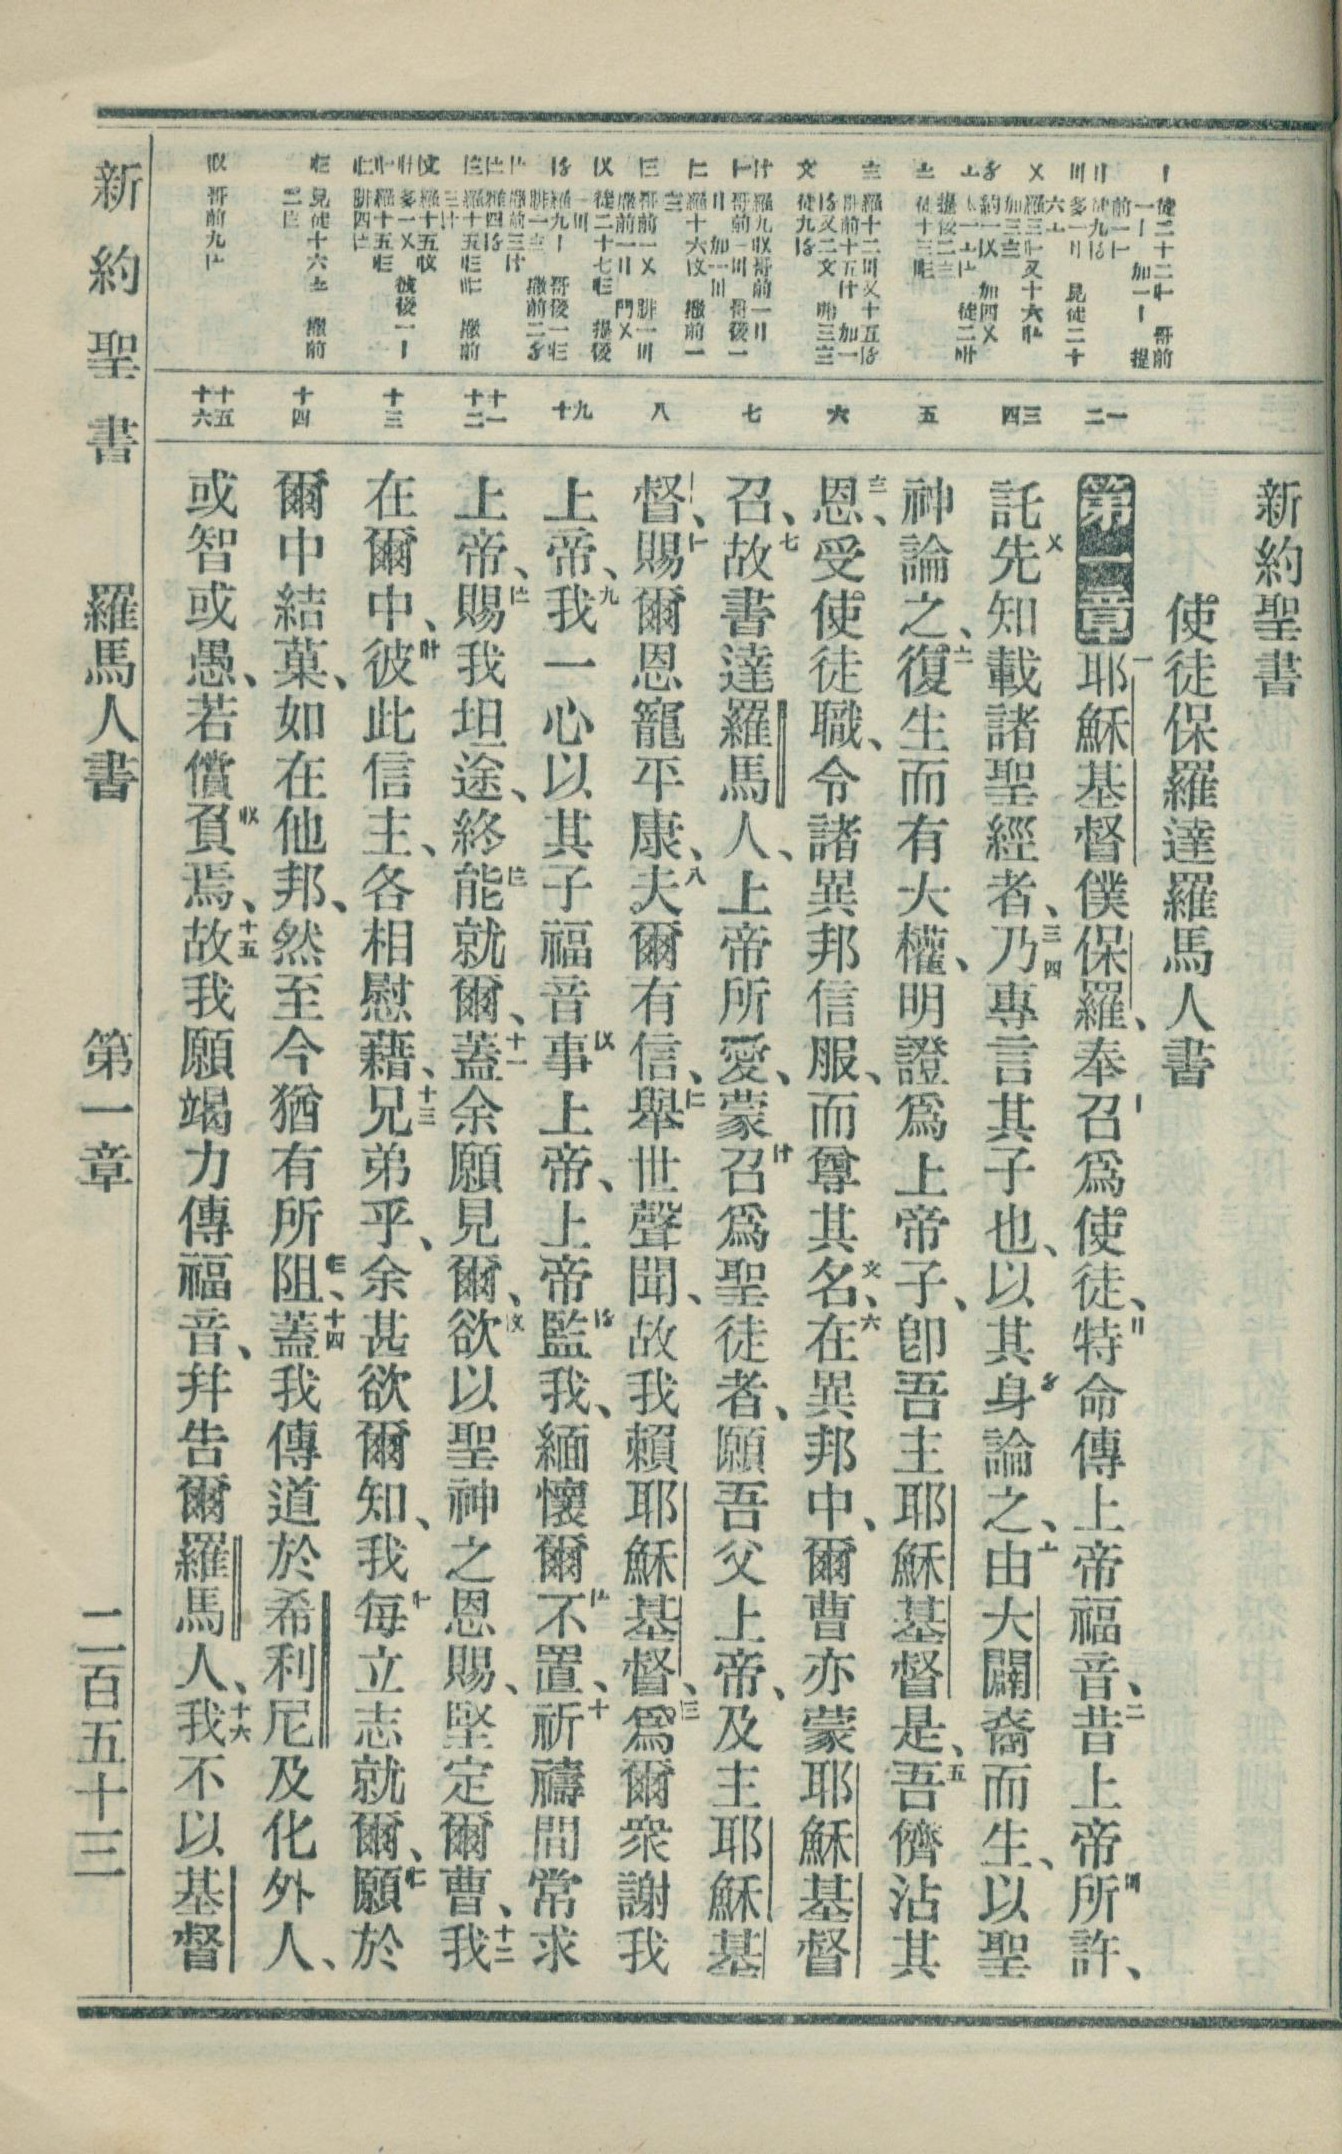 新約聖書
使徒保羅達羅馬人書
第一章 一耶穌基督僕保羅、奉召爲使徒、特命傳上帝福音、二昔上帝所許、
託先知載諸聖經者、三四乃專言其子也、以其身論之、由大闢裔而生、以聖
神論之、復生而有大權、明證爲上帝子、卽吾主耶穌基督是、五吾儕沾其
恩、受使徒職、令諸異邦信服、而尊其名、六在異邦中、爾曹亦蒙耶穌基督
召、七故書達羅馬人、上帝所愛、蒙召爲聖徒者、願吾父上帝、及主耶穌基
督、賜爾恩寵平康、八夫爾有信、舉世聲聞、故我賴耶穌基督、爲爾衆謝我
上帝、九我一心以其子福音事上帝、上帝監我、緬懷爾不置、十祈禱間常求
上帝、賜我坦途、終能就爾、十一蓋余願見爾、欲以聖神之恩賜、堅定爾曹、十二我
在爾中、彼此信主、各相慰藉、十三兄弟乎、余甚欲爾知、我每立志就爾、願於
爾中結菓、如在他邦、然至今猶有所阻、十四蓋我傳道於希利尼及化外人、
或智或愚、若償負焉、十五故我願竭力傳福音、幷告爾羅馬人、十六我不以基督
一二
三四
五
六
七
八
九十
十一十二
十三
十四
十五十六
新約聖書 羅馬人書 第一章 二百五十三